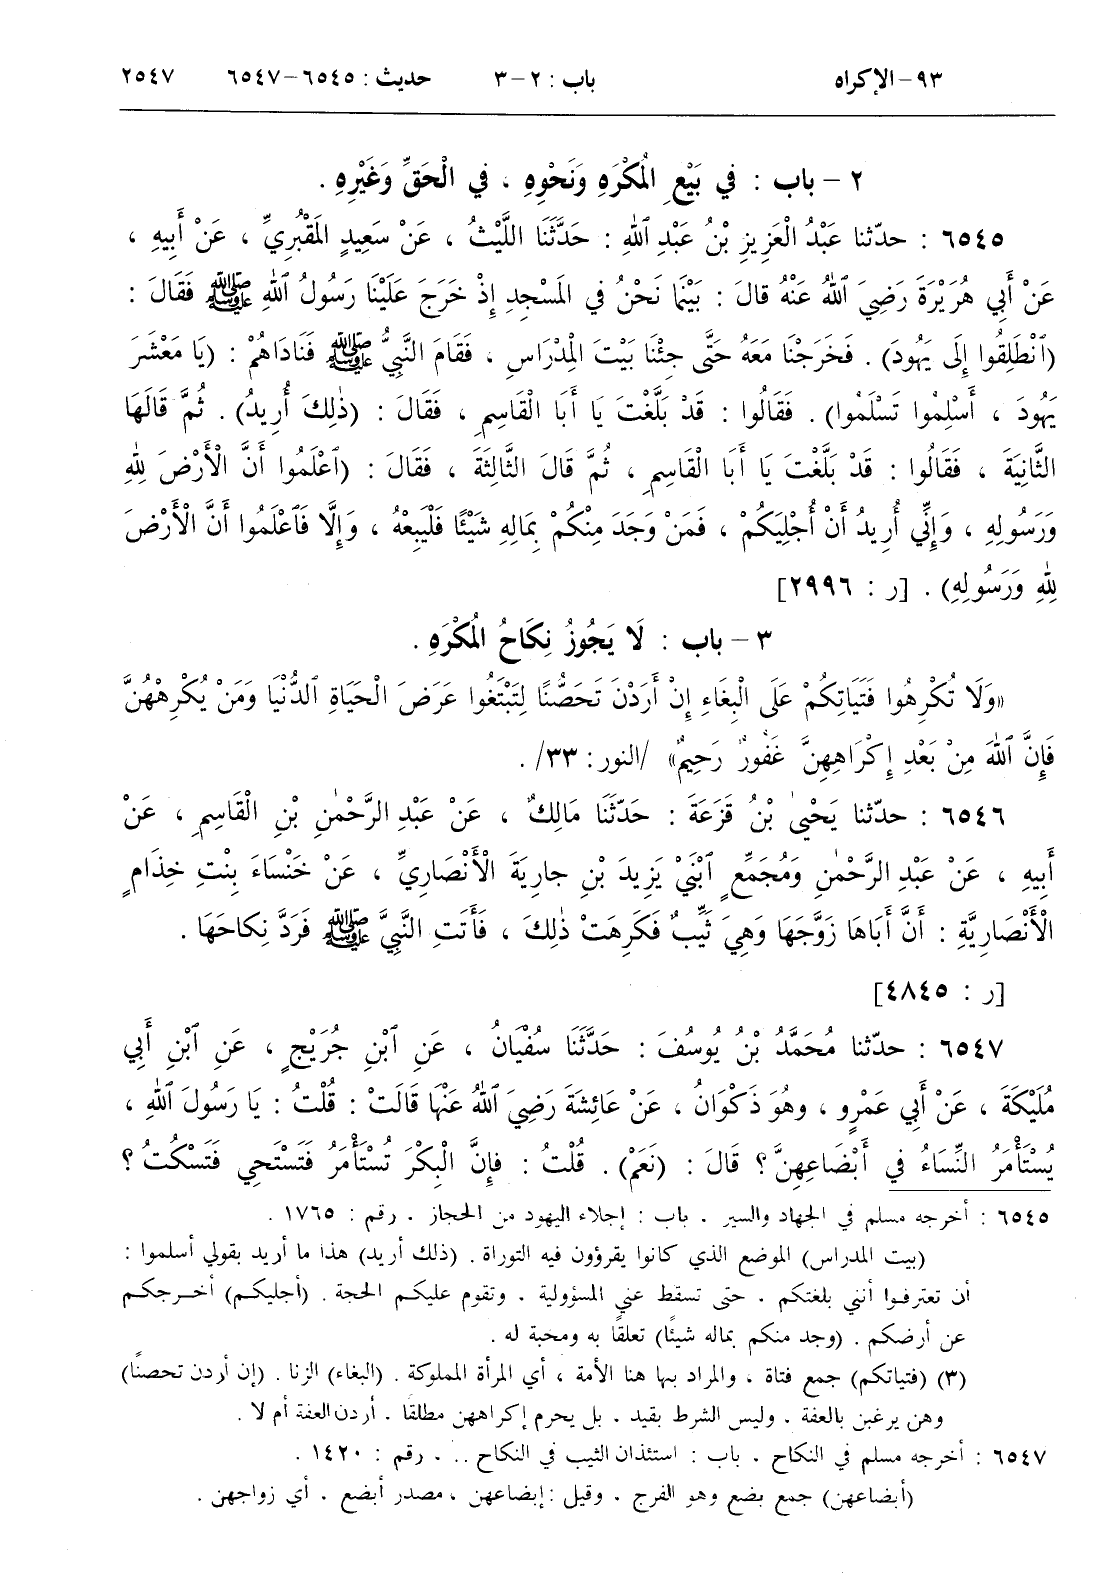 ٩٣ – الإكراه باب : ٢ – ٣ حديث : ٦٥٤٥ – ٦٥٤٧ ٢٥٤٧
٢ – باب : في بَيْعِ المُكْرَهِ وَنَحْوِهِ ، في الْحَقِّ وَغَيْرِهِ .
٦٥٤٥ : حدّثنا عَبْدُ الْعَزِيزِ بْنُ عَبْدِ ٱللهِ : حَدَّثَنَا اللَّيْثُ ، عَنْ سَعِيدٍ المَقْبُرِيِّ ، عَنْ أَبِيهِ ،
عَنْ أَبِي هُرَيْرَةَ رَضِيَ ٱللهُ عَنْهُ قالَ : بَيْنَمَا نَحْنُ في المَسْجِدِ إِذْ خَرَجَ عَلَيْنَا رَسُولُ ٱللهِ ﷺ فَقَالَ :
(ٱنْطَلِقُوا إِلَى يَهُودَ) . فَخَرَجْنَا مَعَهُ حَتَّى جِئْنَا بَيْتَ الْمِدْرَاسِ ، فَقَامَ النَّبِيُّ ﷺ فَنَادَاهُمْ : (يَا مَعْشَرَ
يَهُودَ ، أَسْلِمُوا تَسْلَمُوا) . فَقَالُوا : قَدْ بَلَّغْتَ يَا أَبَا الْقَاسِمِ ، فَقَالَ : (ذٰلِكَ أُرِيدُ) . ثُمَّ قَالَهَا
الثَّانِيَةَ ، فَقَالُوا : قَدْ بَلَّغْتَ يَا أَبَا الْقَاسِمِ ، ثُمَّ قَالَ الثَّالِثَةَ ، فَقَالَ : (ٱعْلَمُوا أَنَّ الْأَرْضَ لِلهِ
وَرَسُولِهِ ، وَإِنِّي أُرِيدُ أَنْ أُجْلِيَكُمْ ، فَمَنْ وَجَدَ مِنْكُمْ بِمَالِهِ شَيْئًا فَلْيَبِعْهُ ، وَإِلَّا فَٱعْلَمُوا أَنَّ الْأَرْضَ
لِلهِ وَرَسُولِهِ) . [ر : ٢٩٩٦]
٣ – باب : لَا يَجُوزُ نِكَاحُ المُكْرَهِ .
«وَلَا تُكْرِهُوا فَتَيَاتِكُمْ عَلَى الْبِغَاءِ إِنْ أَرَدْنَ تَحَصُّنًا لِتَبْتَغُوا عَرَضَ الْحَيَاةِ ٱلدُّنْيَا وَمَنْ يُكْرِهْهُنَّ
فَإِنَّ ٱللهَ مِنْ بَعْدِ إِكْرَاهِهِنَّ غَفُورٌ رَحِيمٌ» /النور : ٣٣/ .
٦٥٤٦ : حدّثنا يَحْيىٰ بْنُ قَزَعَةَ : حَدَّثَنَا مَالِكٌ ، عَنْ عَبْدِ الرَّحْمٰنِ بْنِ الْقَاسِمِ ، عَنْ
أَبِيهِ ، عَنْ عَبْدِ الرَّحْمٰنِ وَمُجَمِّعٍ ٱبْنَيْ يَزِيدَ بْنِ جارِيَةَ الْأَنْصَارِيِّ ، عَنْ خَنْسَاءَ بِنْتِ خِذَامٍ
الْأَنْصَارِيَّةِ : أَنَّ أَبَاهَا زَوَّجَهَا وَهِيَ ثَيِّبٌ فَكَرِهَتْ ذٰلِكَ ، فَأَتَتِ النَّبِيَّ ﷺ فَرَدَّ نِكَاحَهَا .
[ر : ٤٨٤٥]
٦٥٤٧ : حدّثنا مُحَمَّدُ بْنُ يُوسُفَ : حَدَّثَنَا سُفْيَانُ ، عَنِ ٱبْنِ جُرَيْجٍ ، عَنِ ٱبْنِ أَبِي
مُلَيْكَةَ ، عَنْ أَبِي عَمْرٍو ، وهُوَ ذَكْوَانُ ، عَنْ عَائِشَةَ رَضِيَ ٱللهُ عَنْهَا قَالَتْ : قُلْتُ : يَا رَسُولَ ٱللهِ ،
يُسْتَأْمَرُ النِّسَاءُ في أَبْضَاعِهِنَّ ؟ قَالَ : (نَعَمْ) . قُلْتُ : فَإِنَّ الْبِكْرَ تُسْتَأْمَرُ فَتَسْتَحِي فَتَسْكُتُ ؟
٦٥٤٥ : أخرجه مسلم في الجهاد والسير . باب : إجلاء اليهود من الحجاز . رقم : ١٧٦٥ .
(بيت المدراس) الموضع الذي كانوا يقرؤون فيه التوراة . (ذلك أريد) هذا ما أريد بقولي أسلموا :
أن تعترفوا أنني بلغتكم . حتى تسقط عني المسؤولية . وتقوم عليكم الحجة . (أجليكم) أخرجكم
عن أرضكم . (وجد منكم بماله شيئًا) تعلقًا به ومحبة له .
(٣) (فتياتكم) جمع فتاة ، والمراد بها هنا الأمة ، أي المرأة المملوكة . (البغاء) الزنا . (إن أردن تحصنًا)
وهن يرغبن بالعفة . وليس الشرط بقيد . بل يحرم إكراههن مطلقًا . أردن العفة أم لا .
٦٥٤٧ : أخرجه مسلم في النكاح . باب : استئذان الثيب في النكاح .. . رقم : ١٤٢٠ .
(أبضاعهن) جمع بضع وهو الفرج . وقيل : إبضاعهن ، مصدر أبضع . أي زواجهن .